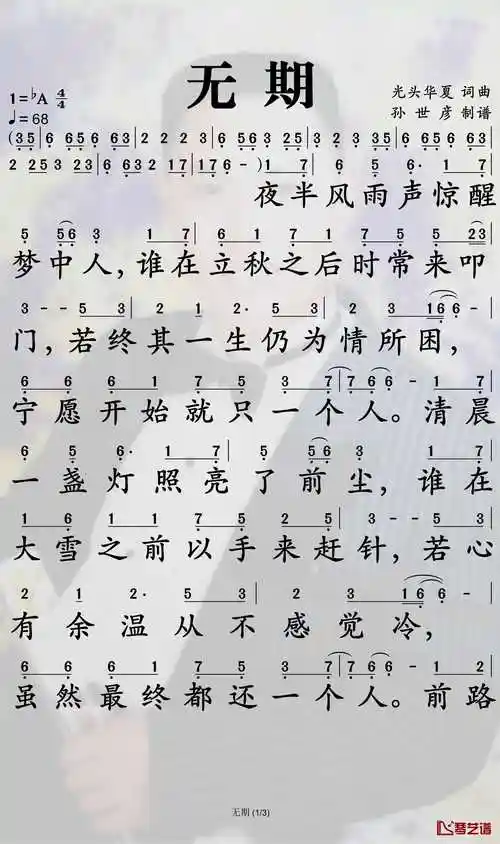 无期
光头华夏 词曲
1=♭A 4/4
孙世彦 制谱
♩=68
(35|6 5 6 5 6 63|2 2 2 3|6 6535 235 35|3 23 3 5 6 5 63|
2 225 3 23|6 5 6 5 6 632 17|176 - -)17|6 5 6· 17|
夜半风雨声惊醒
5 56 3 17|6 6 1 7 6 7 5 23|
梦中人,谁在立秋之后时常来叩
3 - - 53|2 1 2· 53|2 2 3 166|6 - -
门,若终其一生仍为情所困,
6 6 6 1 7 5 3 7|7 6 6 - 17|
宁愿开始就只一个人。清晨
6 5 6· 17|5 56 3 17|
一盏灯照亮了前尘,谁在
1 6 1 7 6 7 2 5|3 - - 53|
大雪之前以手来赶针,若心
2 1 2· 53|2 2 3 166|6 - -
有余温从不感觉冷,
6 6 6 1 7 5 3 7|7 6 6 - 17|
虽然最终都还一个人。前路
无期 (1/3)
琴艺谱